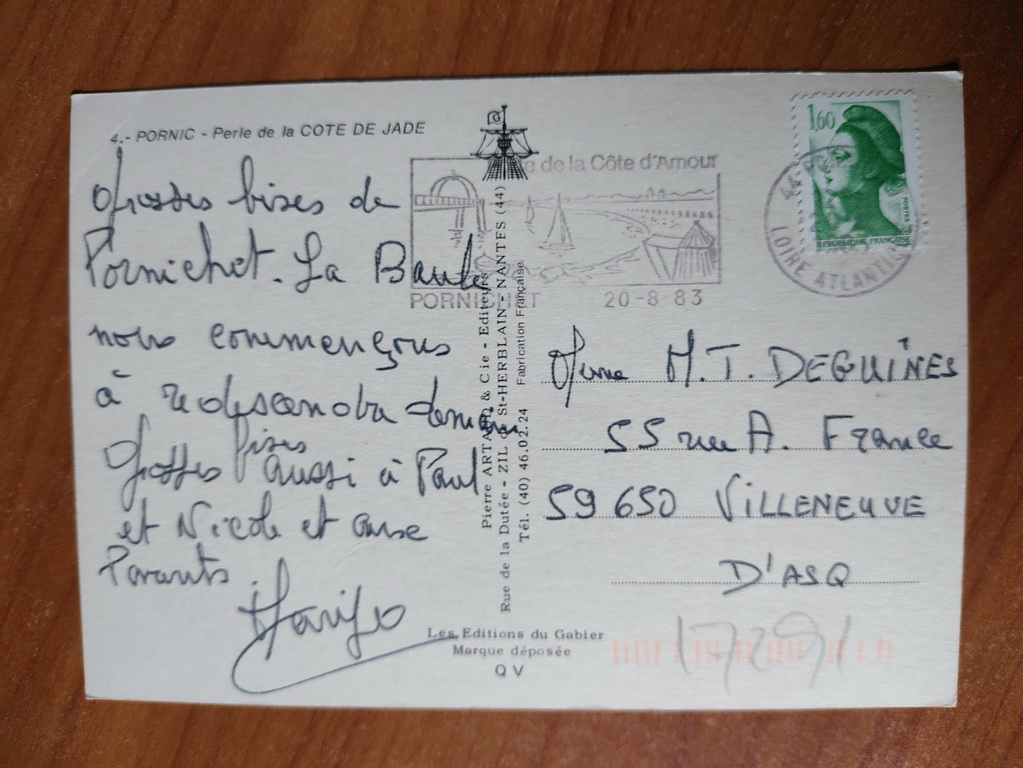 4.- PORNIC - Perle de la COTE DE JADE
Grosses bises de
Pornichet. La Baule
nous commençons
à redescendre demain
Grosses bises aussi à Paul
et Nicole et aux
Parents
Marijo
de la Côte d'Amour
PORNICHET 20-8-83
1,60
POSTES
REPUBLIQUE FRANÇAISE
44
LOIRE ATLANTIQUE
Pierre ARTAUD & Cie - Editeurs
Rue de la Dutée - ZIL de St-HERBLAIN - NANTES (44)
Tél. (40) 46.02.24 Fabrication Française
Mme M.T. DEGUINES
55 rue A. France
59650 VILLENEUVE
D'ASQ
Les Editions du Gabier
Marque déposée
QV